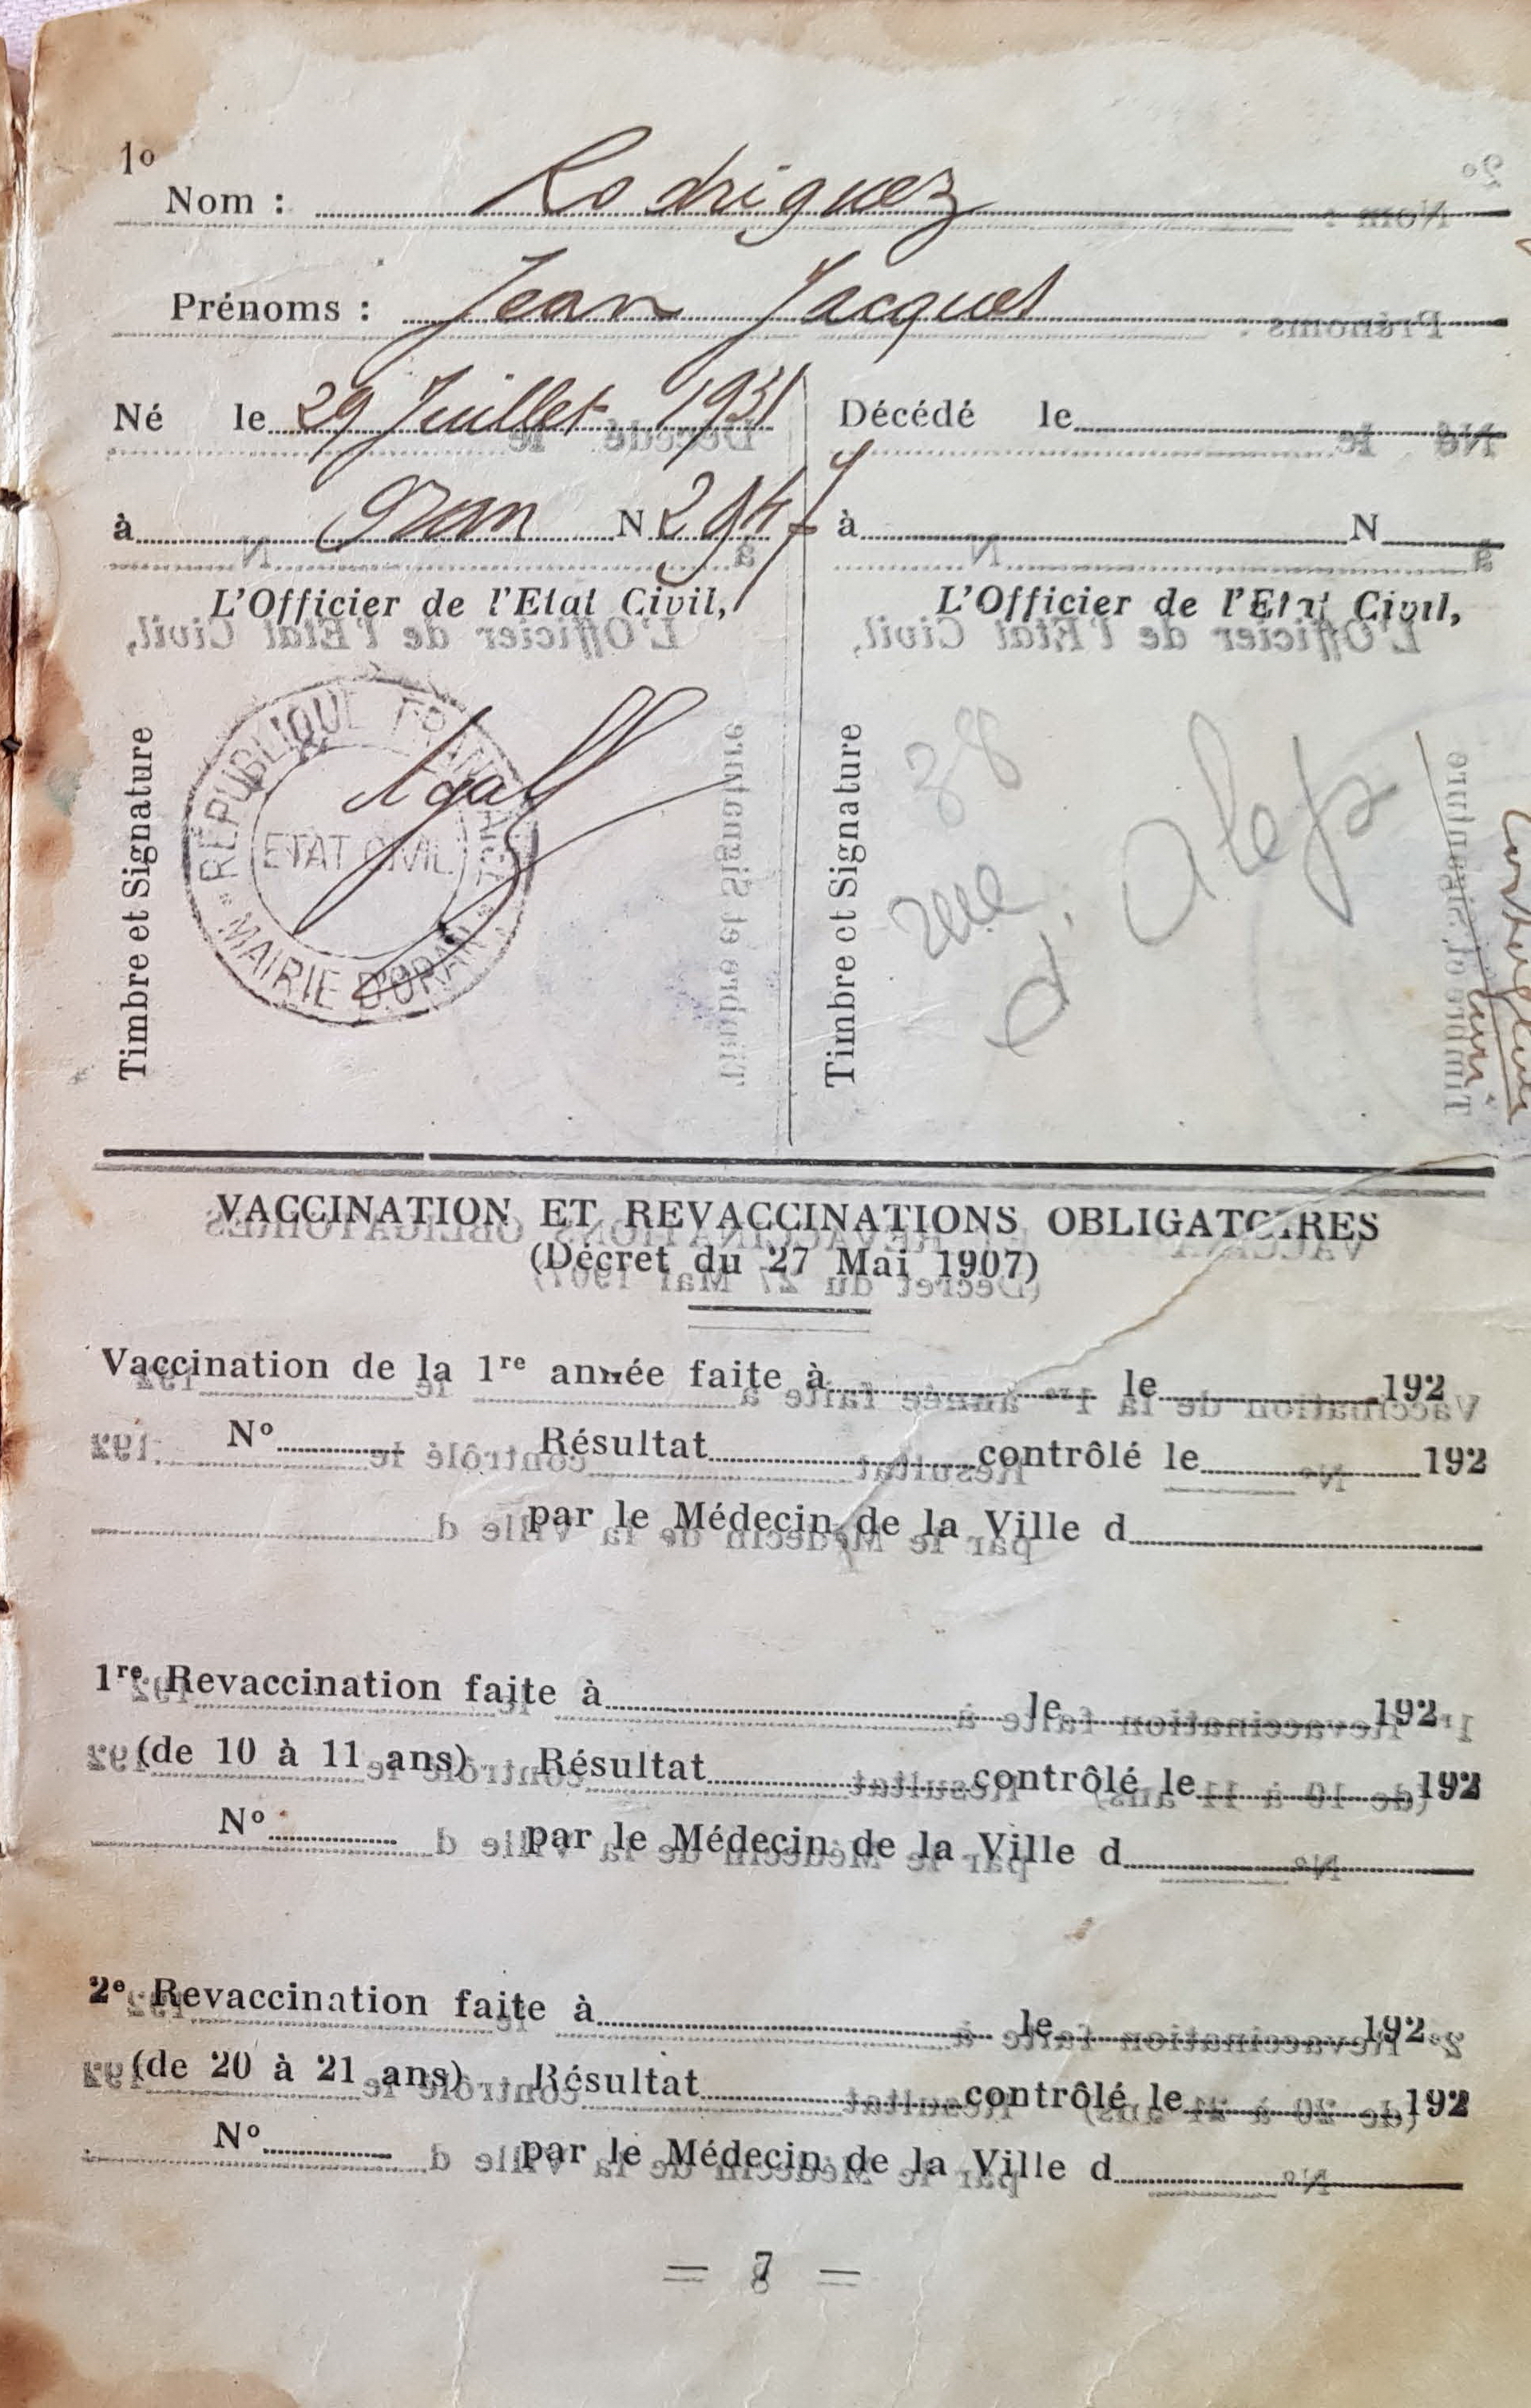 1º
Nom : Rodriguez
Prénoms : Jean Jacques
Né le 29 Juillet 1931
à Oran N
L'Officier de l'Etat Civil,
Timbre et Signature
RÉPUBLIQUE FRANÇAISE
ETAT CIVIL
* MAIRIE D'ORAN *
Décédé le
à N
L'Officier de l'Etat Civil,
Timbre et Signature
38
rue
d'Alep
VACCINATION ET REVACCINATIONS OBLIGATOIRES
(Décret du 27 Mai 1907)
Vaccination de la 1re année faite à le 192
Nº Résultat contrôlé le 192
par le Médecin de la Ville d
1re Revaccination faite à le 192
(de 10 à 11 ans) Résultat contrôlé le 192
Nº par le Médecin de la Ville d
2e Revaccination faite à le 192
(de 20 à 21 ans) Résultat contrôlé le 192
Nº par le Médecin de la Ville d
= 7 =